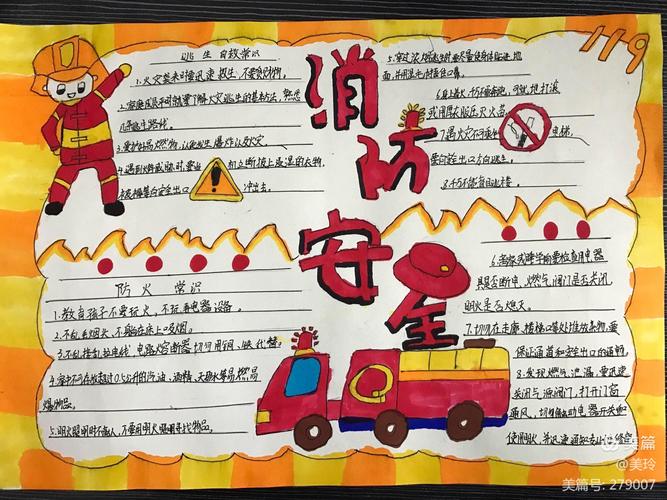 119
消防安全
逃生自救常识
1.火灾袭来时要迅速逃生,不要贪财物。
2.家庭成员平时就要了解火灾逃生的基本方法,熟悉
几条逃生路线。
4.遇到火灾威胁时,要当机立断披上浸湿的衣物、
被褥等向安全出口冲出去。
5.穿过浓烟逃生时要尽量使身体贴近地
面,并用湿毛巾捂住口鼻。
6.身上着火,千万不要奔跑,可就地打滚
或用厚衣服压灭火苗。
7.遇火灾不可乘坐电梯,
要向安全出口方向逃生。
8.千万不能盲目跳楼。
防火常识
1.教育孩子不要玩火,不玩弄电器设备。
2.不乱丢烟头,不躺在床上吸烟。
3.不乱接乱拉电线,电路熔断器切勿用铜、铁代替。
4.家中不可存放超过0.5公升的汽油、酒精、天那水等易燃易
爆物品。
5.明火照明时不离人,不要用明火照明寻找物品。
6.离家或睡觉前要检查用电器
具是否断电,燃气阀门是否关闭,
明火是否熄灭。
7.切勿在走廊、楼梯口等处堆放杂物,要
保证通道和安全出口的通畅。
8.发现燃气泄漏,要迅速
关闭气源阀门,打开门窗
通风,切勿触动电器开关和
使用明火,并迅速通知
美篇
@美玲
美篇号: 279007